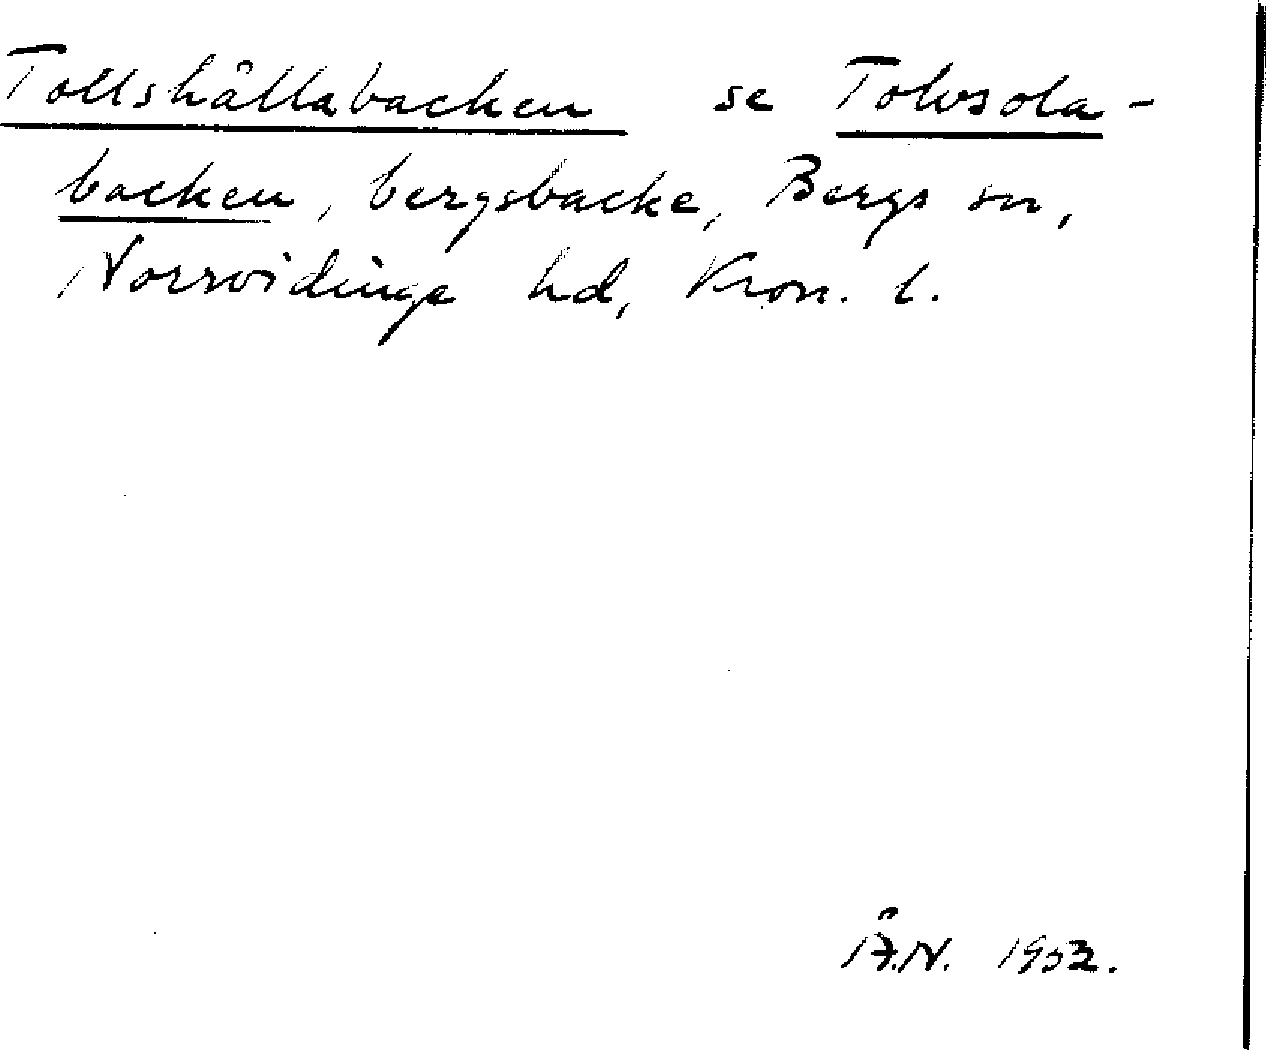 Tollshållabacken se Tolvsola-
backen, bergsbacke, Bergs sn,
Norrvidinge hd, Kron. l.
Å.N. 1952.